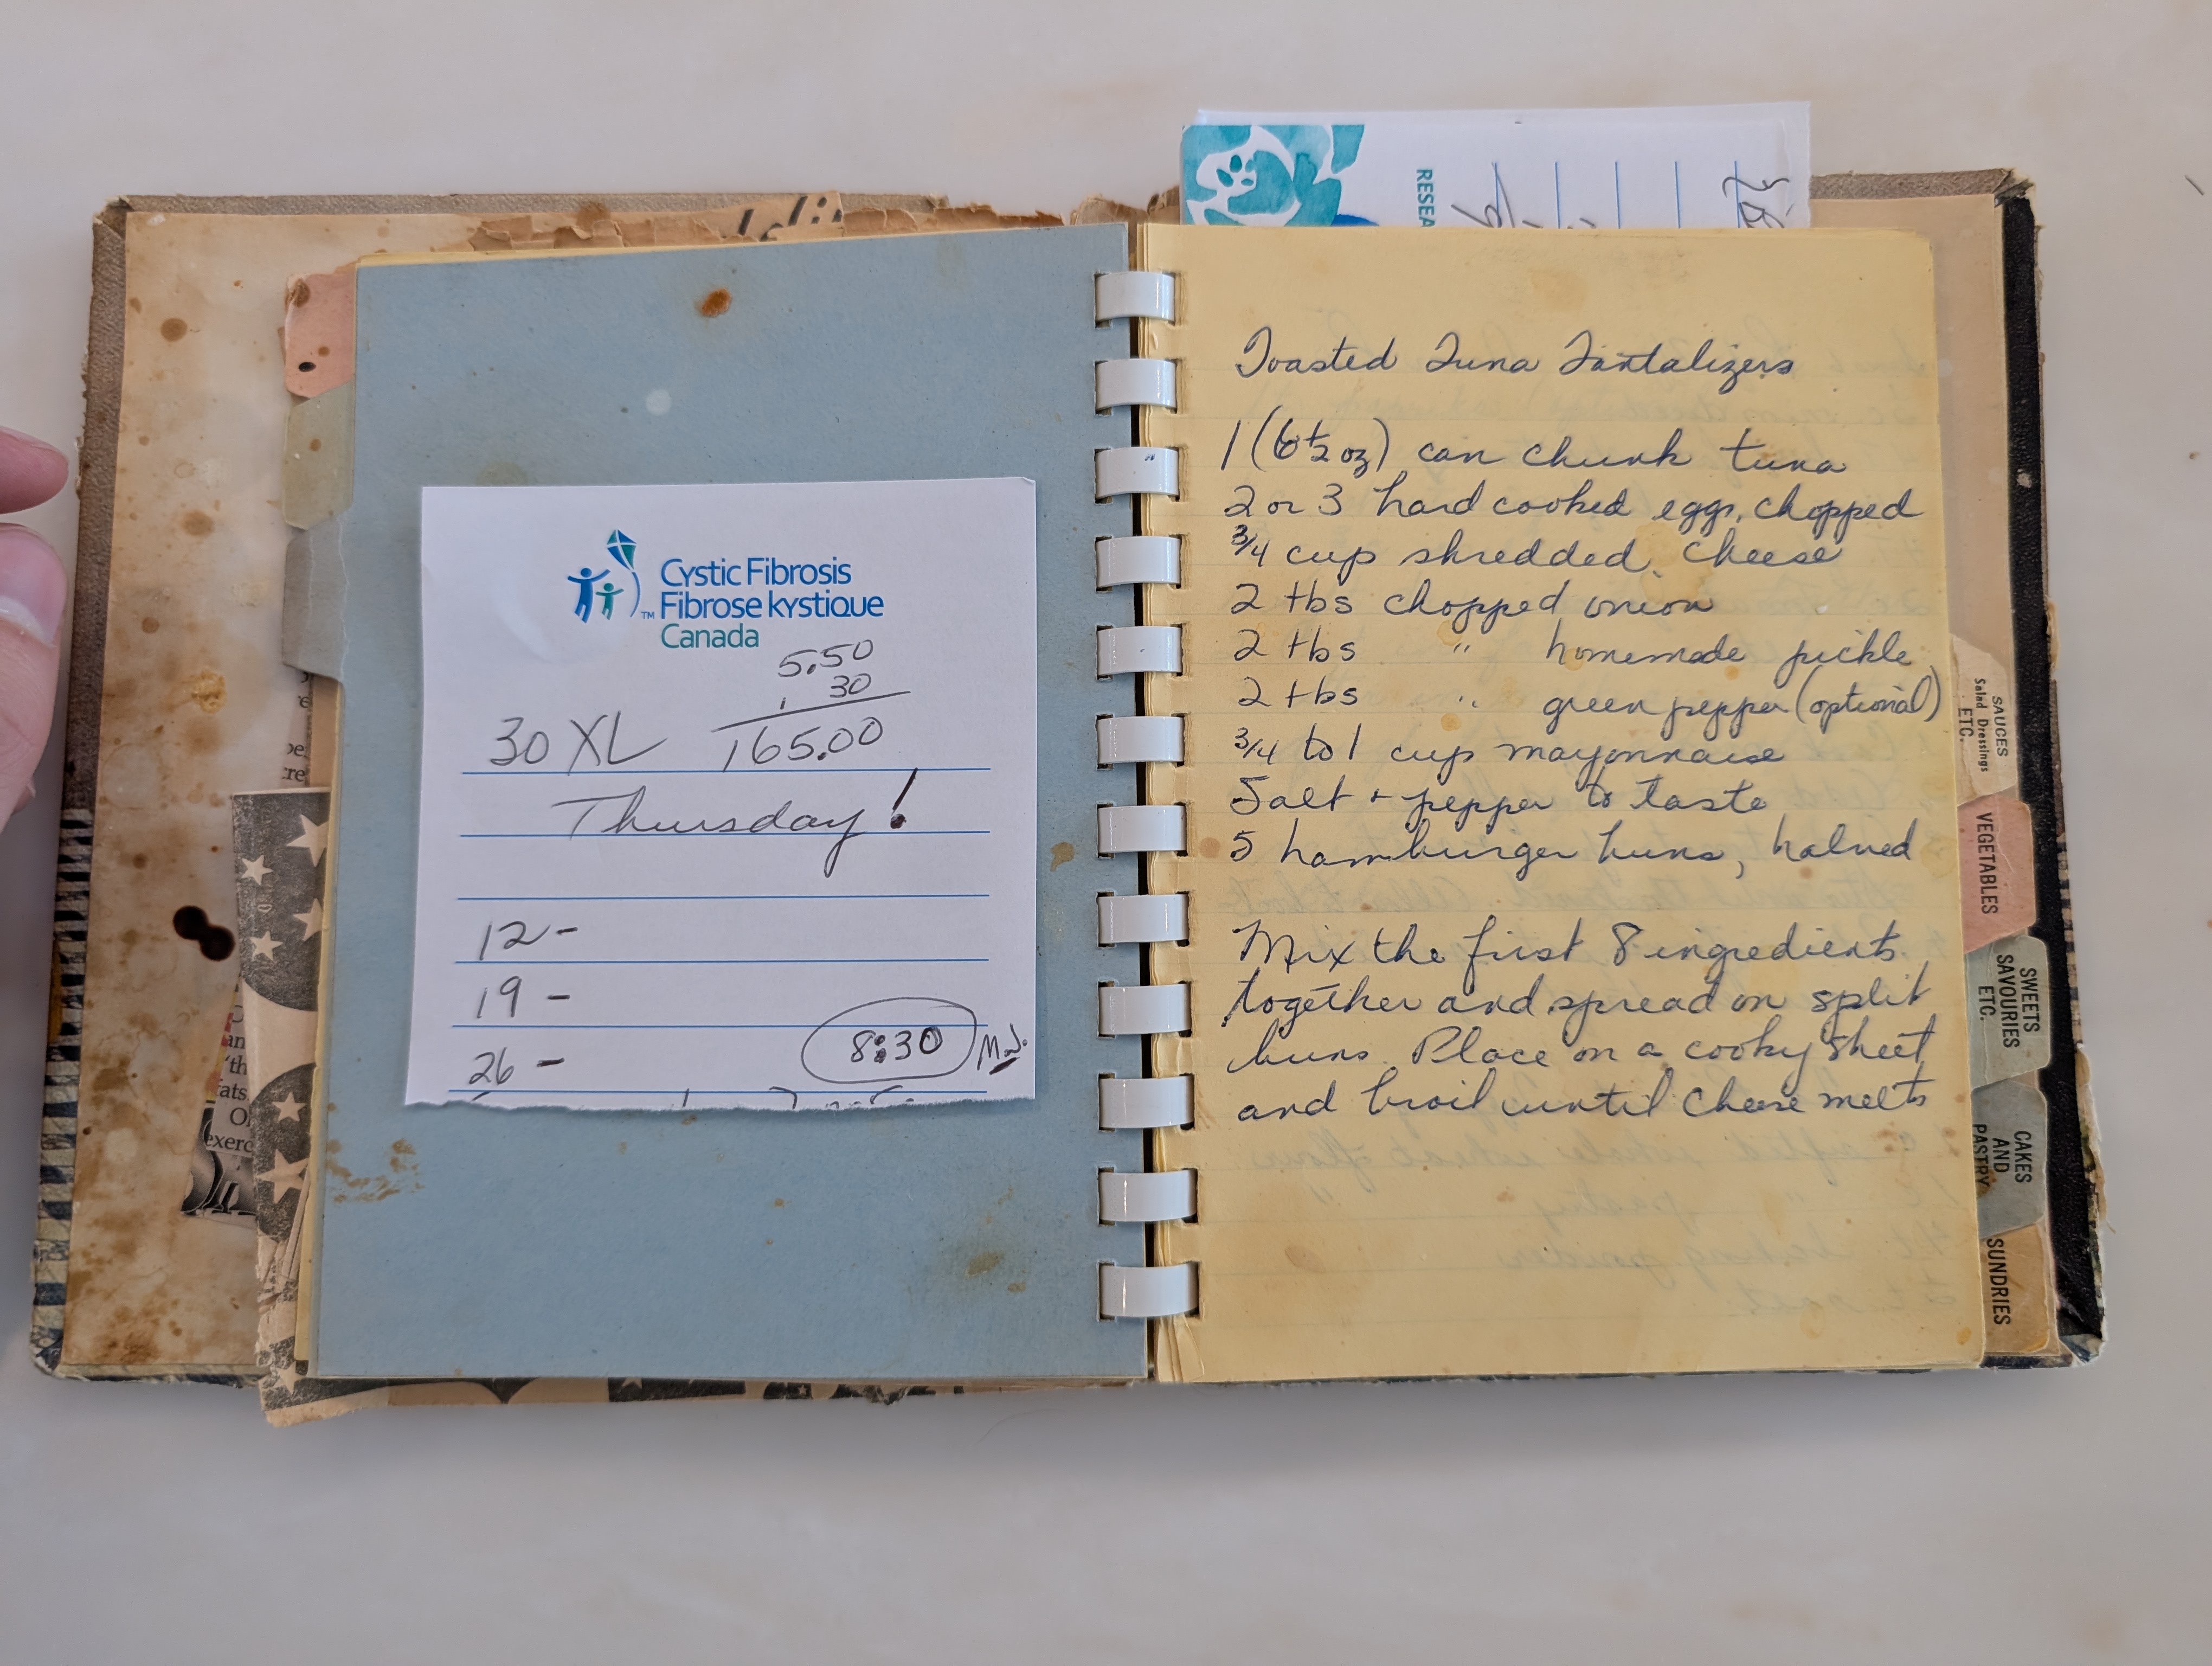 Cystic Fibrosis
Fibrose kystique
Canada
5.50
30
30 XL 165.00
Thursday!
12 -
19 -
26 -
8:30
RESEA
Toasted Tuna Tantalizers
1 (6 1/2 oz) can chunk tuna
2 or 3 hard cooked eggs, chopped
3/4 cup shredded cheese
2 tbs chopped onion
2 tbs " homemade pickle
2 tbs " green pepper (optional)
3/4 to 1 cup mayonnaise
Salt + pepper to taste
5 hamburger buns, halved
Mix the first 8 ingredients
together and spread on split
buns. Place on a cooky sheet
and broil until cheese melts
SAUCES
Salad Dressings
ETC.
VEGETABLES
SWEETS
SAVOURIES
ETC.
CAKES
AND
PASTRY
SUNDRIES
an
'th
fats
O
exerc